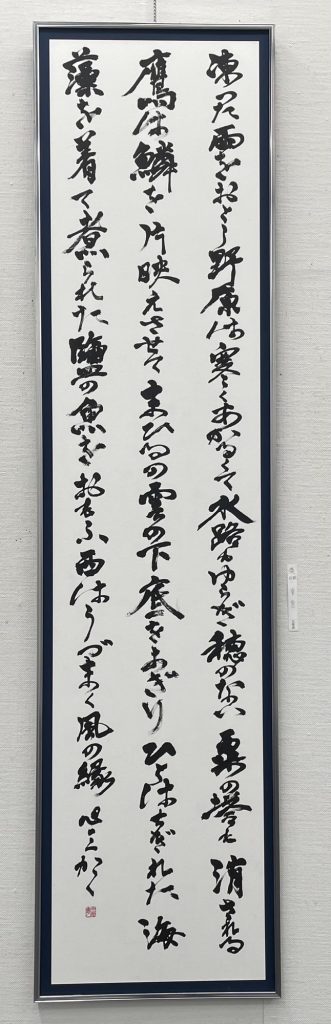 凍った雨をおとし野原は寒くあかるくて水路もゆらぎ穂のない粟の塔も消される
鷹は鱗を片映えさせてまひるの雲の下底をよぎりひとはちぎれた海
藻を着て煮られた鹽の魚をおもふ西はうづまく風の縁